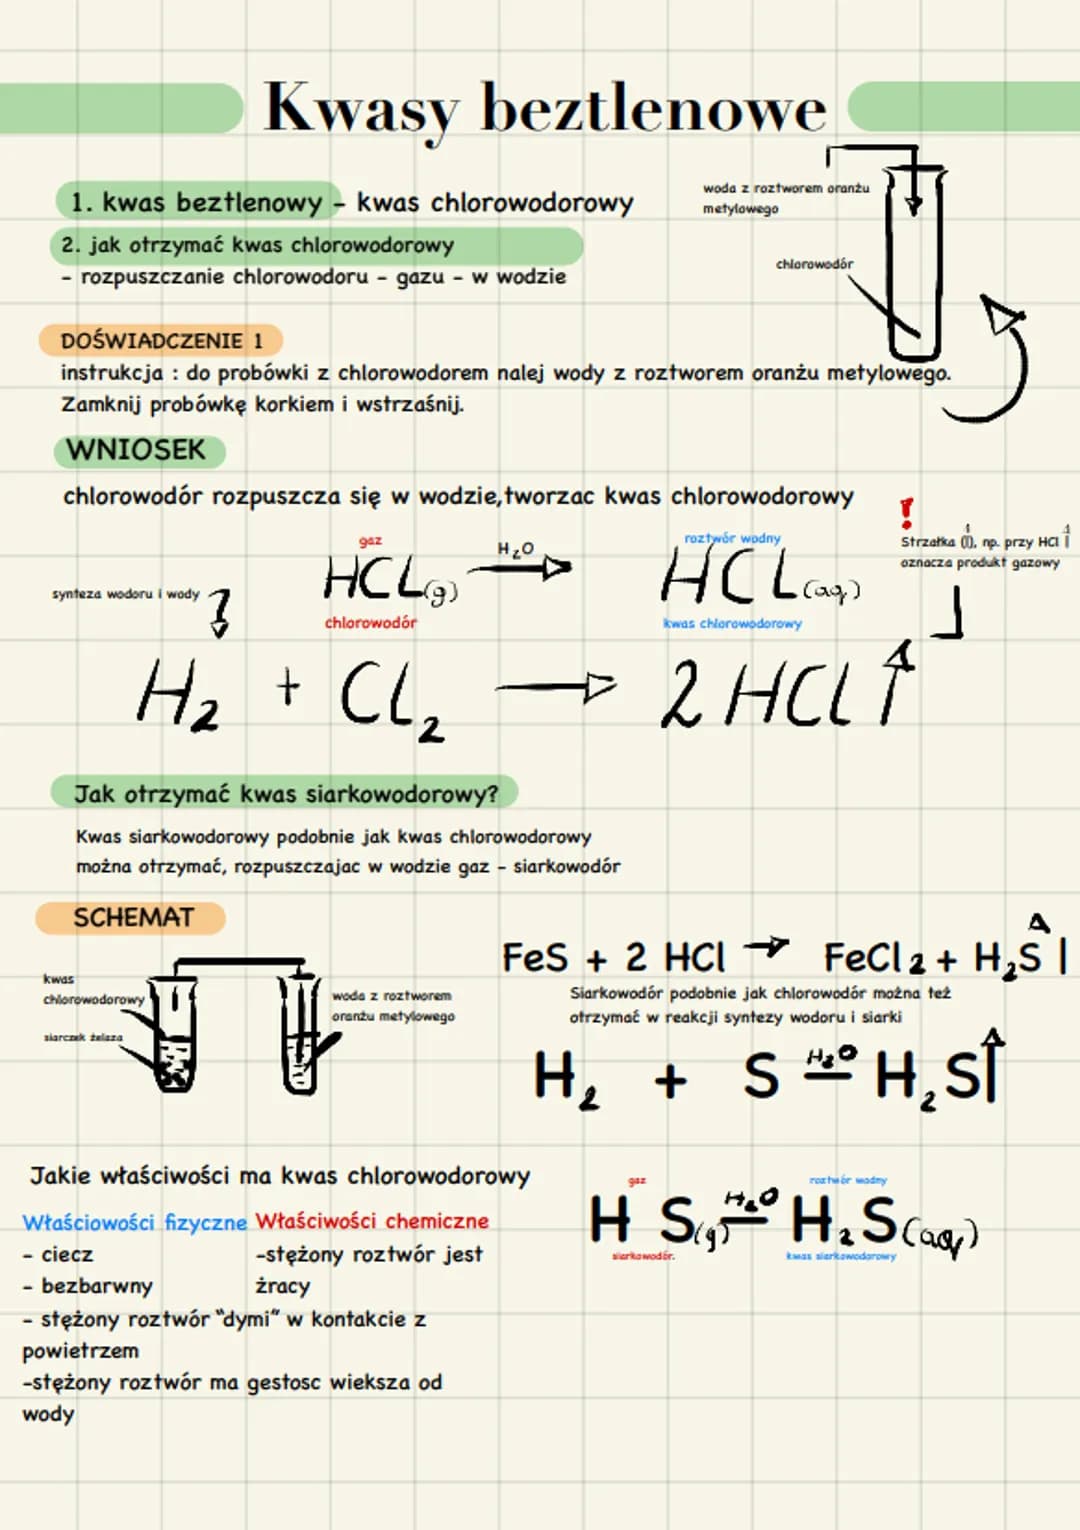 Kwasy beztlenowe
1. kwas beztlenowy - kwas chlorowodorowy
2. jak otrzymać kwas chlorowodorowy
- rozpuszczanie chlorowodoru - gazu - w wodzie
woda z roztworem oranżu
metylowego
chlorowodór
DOŚWIADCZENIE 1
instrukcja : do probówki z chlorowodorem nalej wody z roztworem oranżu metylowego.
Zamknij probówkę korkiem i wstrzaśnij.
WNIOSEK
chlorowodór rozpuszcza się w wodzie,tworzac kwas chlorowodorowy
!
Strzałka (↑), np. przy HCl ↑
oznacza produkt gazowy
gaz
roztwór wodny
HCL(g) H2O → HCL(aq)
chlorowodór
kwas chlorowodorowy
synteza wodoru i wody
H2 + Cl2 → 2HCl↑
Jak otrzymać kwas siarkowodorowy?
Kwas siarkowodorowy podobnie jak kwas chlorowodorowy
można otrzymać, rozpuszczajac w wodzie gaz - siarkowodór
SCHEMAT
kwas
chlorowodorowy
siarczek żelaza
woda z roztworem
oranżu metylowego
FeS + 2 HCl → FeCl2 + H2S↑
Siarkowodór podobnie jak chlorowodór można też
otrzymać w reakcji syntezy wodoru i siarki
H2 + S H2O — H2S↑
Jakie właściwości ma kwas chlorowodorowy
Właściowości fizyczne
- ciecz
- bezbarwny
- stężony roztwór “dymi” w kontakcie z
powietrzem
-stężony roztwór ma gestosc wieksza od
wody
Właściwości chemiczne
-stężony roztwór jest
żracy
gaz
roztwór wodny
H S(g) H2O — H2S(aq)
siarkowodór.
kwas siarkowodorowy